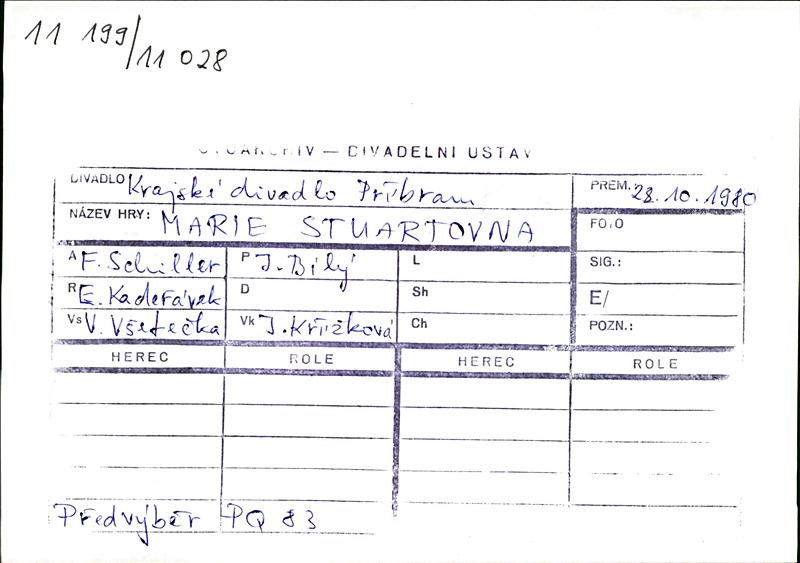 11 199/11 028
FOTOARCHIV — DIVADELNI USTAV
DIVADLO Krajské divadlo Příbram PREM. 28.10.1980
NÁZEV HRY: MARIE STUARTOVNA FOTO
A F. Schiller P J. Bílý L SIG.:
R E. Kadeřávek D Sh E/
Vs V. Všetečka Vk J. Křížková Ch POZN.:
HEREC ROLE HEREC ROLE
Předvýběr PQ 83